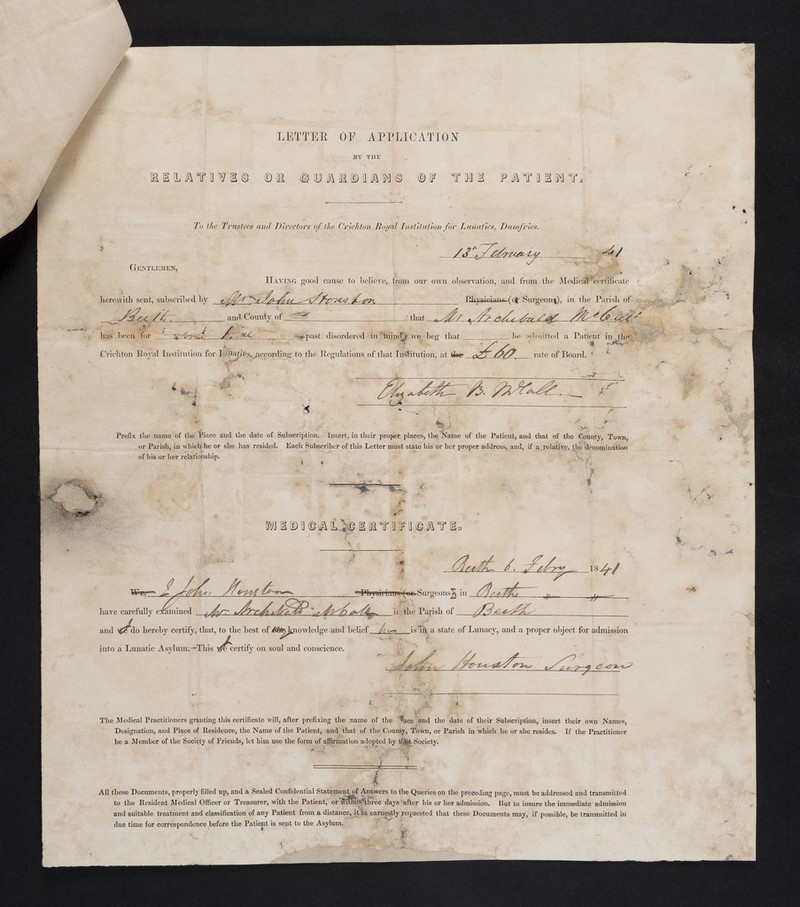 LETTER OF APPLICATION
BY THE
RELATIVES OR GUARDIANS OF THE PATIENT.
To the Trustees and Directors of the Crichton Royal Institution for Lunatics, Dumfries.
13 February 41
GENTLEMEN,
HAVING good cause to believe, from our own observation, and from the Medical certificate
herewith sent, subscribed by Mr John Houston Physicians (or Surgeons), in the Parish of
Beith and County of that Mr Archibald McCall
has been for past disordered in mind, we beg that be admitted a Patient in the
Crichton Royal Institution for Lunatics, according to the Regulations of that Institution, at the £60 rate of Board.
Elizabeth B. McCall
Prefix the name of the Place and the date of Subscription. Insert, in their proper places, the Name of the Patient, and that of the County, Town,
or Parish, in which he or she has resided. Each Subscriber of this Letter must state his or her proper address, and, if a relative, the denomination
of his or her relationship.
MEDICAL CERTIFICATE.
Beith 6. Febry 1841
We, I John Houston Physicians (or Surgeons) in Beith
have carefully examined Mr Archibald McCall in the Parish of Beith
and I do hereby certify, that, to the best of my knowledge and belief he is in a state of Lunacy, and a proper object for admission
into a Lunatic Asylum.—This I certify on soul and conscience.
John Houston Surgeon
The Medical Practitioners granting this certificate will, after prefixing the name of the Place and the date of their Subscription, insert their own Names,
Designation, and Place of Residence, the Name of the Patient, and that of the County, Town, or Parish in which he or she resides. If the Practitioner
be a Member of the Society of Friends, let him use the form of affirmation adopted by that Society.
All these Documents, properly filled up, and a Sealed Confidential Statement of Answers to the Queries on the preceding page, must be addressed and transmitted
to the Resident Medical Officer or Treasurer, with the Patient, or within three days after his or her admission. But to insure the immediate admission
and suitable treatment and classification of any Patient from a distance, it is earnestly requested that these Documents may, if possible, be transmitted in
due time for correspondence before the Patient is sent to the Asylum.